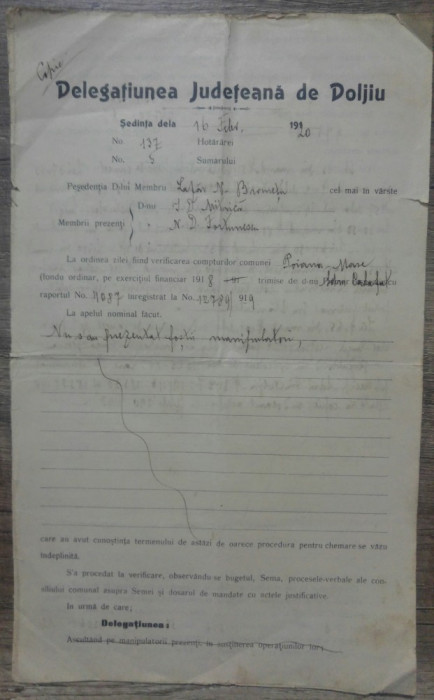 Copie
Delegațiunea Județeană de Doljiu
Ședința dela 16 Febr. 1920
No 137 Hotărârei
No. 5 Sumarului
Peședenția Dlui Membru Lafăr M. cel mai în vârste
Dnii I. D.
Membrii prezenți " N. D. Fortunescu
La ordinea zilei fiind verificarea compturilor comunei Poiana Mare
(fondu ordinar, pe exercițiul financiar 1918 trimise de d-nu cu
raportul No. 4087 inregistrat la No 12789/919
La apelul nominal făcut.
Nu s'au prezentat foștii manipulatori,
care au avut cunoștința termenului de astăzi de oarece procedura pentru chemare se văzu
îndeplinită.
S'a procedat la verificare, observându-se bugetul, Sema, procesele-verbale ale con-
siliului comunal asupra Semei și dosarul de mandate cu actele justificative.
In urmă de care;
Delegațiunea:
Ascultând pe manipulatorii prezenți, în susținerea operațiunilor lor;